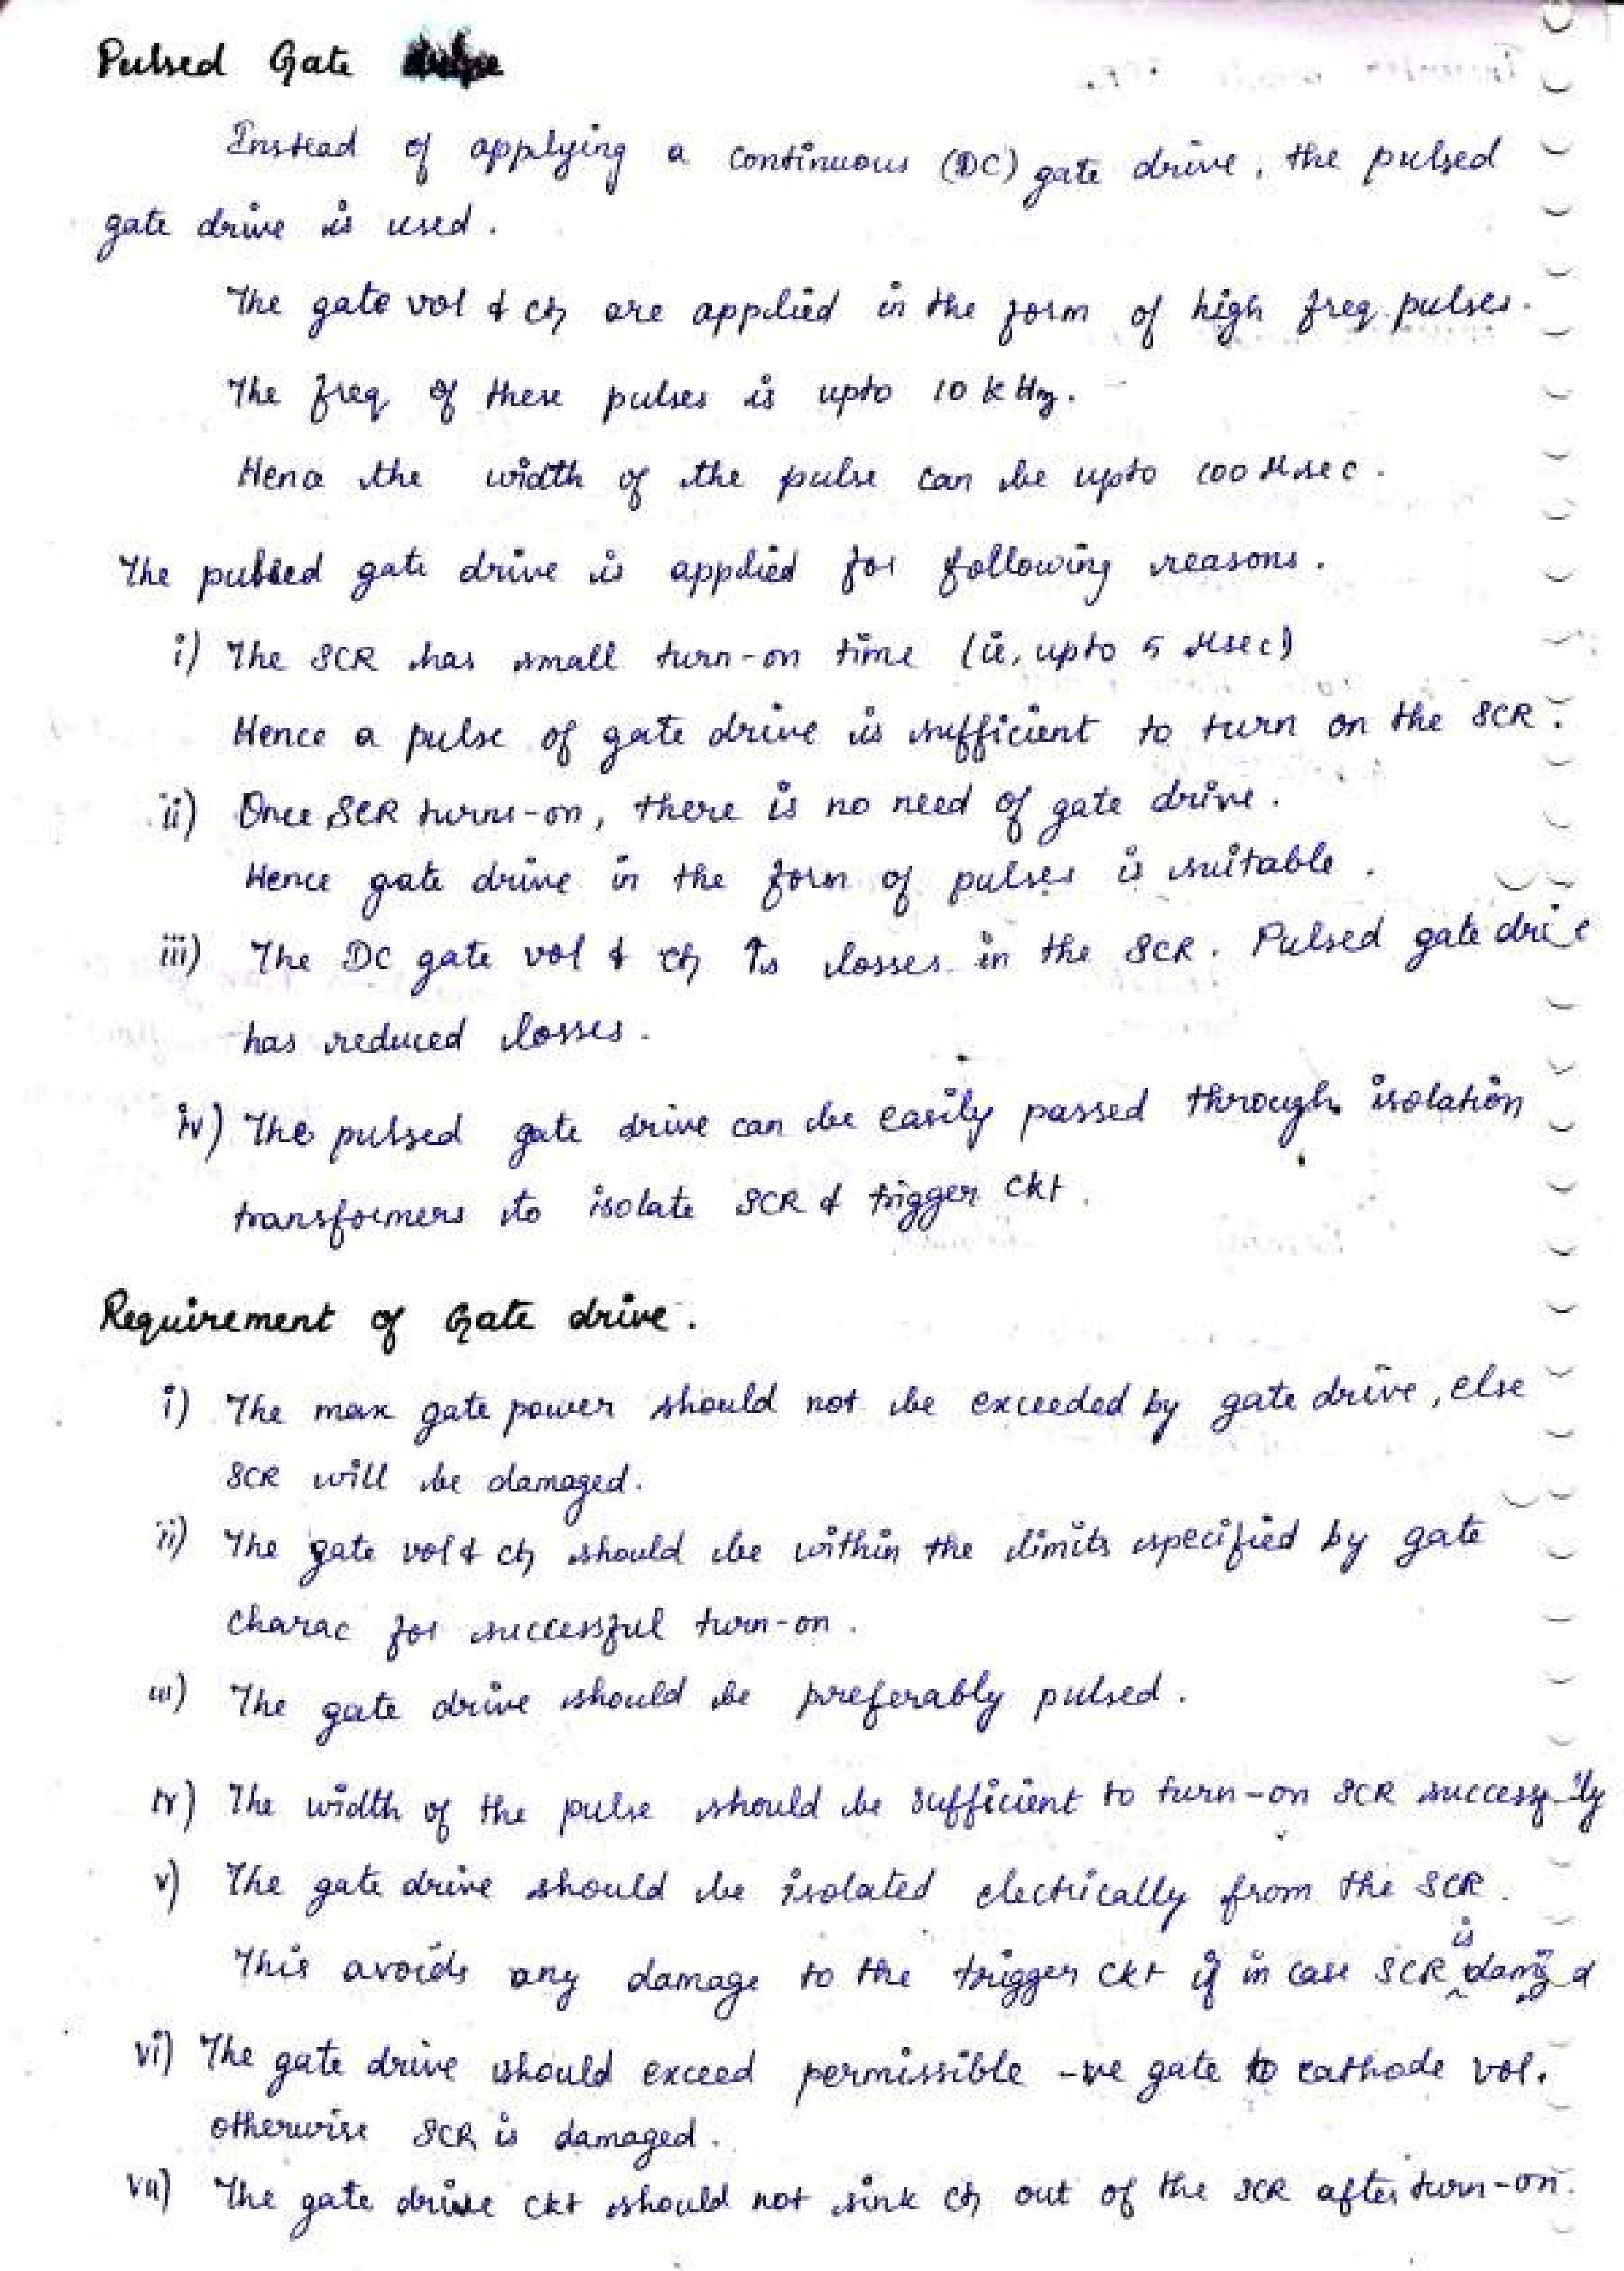 Pulsed Gate
Instead of applying a continuous (DC) gate drive, the pulsed
gate drive is used.
The gate vol & ct are applied in the form of high freq pulses.
The freq of these pulses is upto 10 kHz.
Hence the width of the pulse can be upto 100 μsec.
The pulsed gate drive is applied for following reasons.
i) The SCR has small turn-on time (ie, upto 5 μsec)
Hence a pulse of gate drive is sufficient to turn on the SCR.
ii) Once SCR turns-on, there is no need of gate drive.
Hence gate drive in the form of pulses is suitable.
iii) The DC gate vol & ct ↑s losses in the SCR. Pulsed gate drive
has reduced losses.
iv) The pulsed gate drive can be easily passed through isolation
transformers to isolate SCR & trigger ckt.
Requirement of Gate drive.
i) The max gate power should not be exceeded by gate drive, else
SCR will be damaged.
ii) The gate vol & ct should be within the limits specified by gate
charac for successful turn-on.
iii) The gate drive should be preferably pulsed.
iv) The width of the pulse should be sufficient to turn-on SCR successfully
v) The gate drive should be isolated electrically from the SCR.
This avoids any damage to the trigger ckt if in case SCR is damged
vi) The gate drive should exceed permissible -ve gate to cathode vol.
otherwise SCR is damaged.
vii) The gate drive ckt should not sink ct out of the SCR after turn-on.